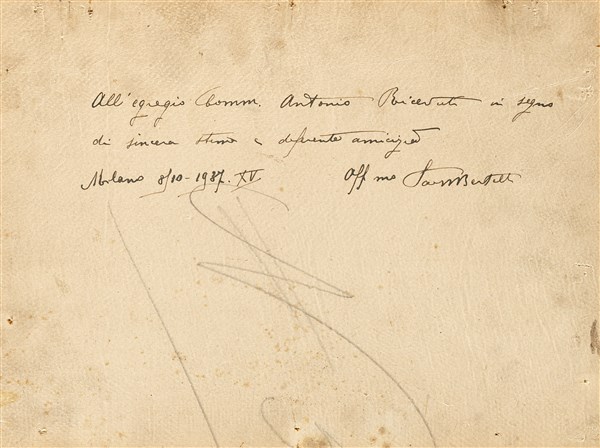 All'egregio Comm. Antonio in segno
di sincera stima e deferente amicizia
Milano 8/10-1937. XV Aff mo